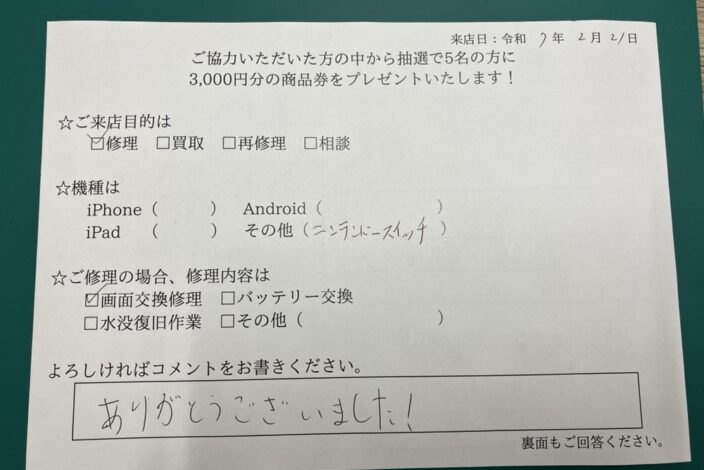 来店日：令和 7 年 2 月 21日
ご協力いただいた方の中から抽選で5名の方に
3,000円分の商品券をプレゼントいたします！
☆ご来店目的は
☑修理 □買取 □再修理 □相談
☆機種は
iPhone（ ） Android（ ）
iPad （ ） その他（ニンテンドースイッチ）
☆ご修理の場合、修理内容は
☑画面交換修理 □バッテリー交換
□水没復旧作業 □その他（ ）
よろしければコメントをお書きください。
ありがとうございました！
裏面もご回答ください。